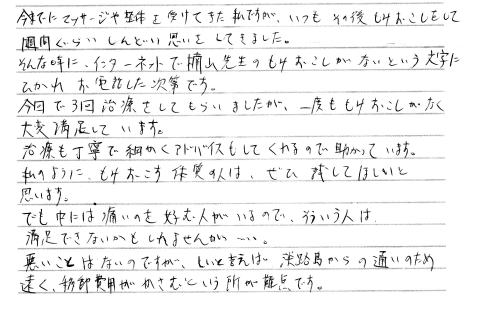 今までにマッサージや整体を受けてきた私ですが、いつもその後もみおこしをして
1週間ぐらいしんどい思いをしてきました。
そんな時に、インターネットで横山先生のもみおこしがないという文字に
ひかれお電話した次第です。
今回で3回治療をしてもらいましたが、一度ももみおこしがなく
大変満足しています。
治療も丁寧で細かくアドバイスもしてくれるので助かっています。
私のように、もみおこす体質の人は、ぜひ試してほしいと
思います。
でも中には痛いのを好む人がいるので、そういう人は
満足できないかもしれませんが…。
悪いことはないのですが、しいと言えば淡路島からの通いのため
遠く、交通費用がかさむという所が難点です。